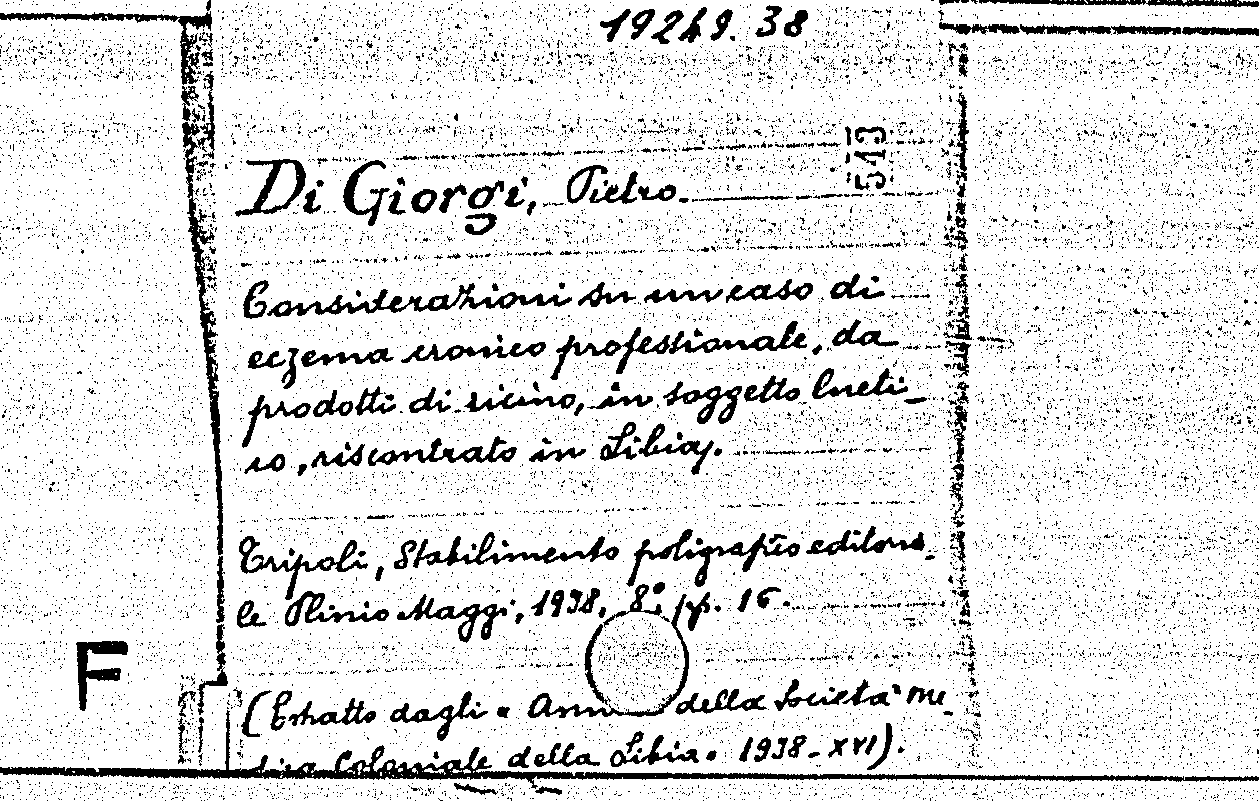 19249. 38
543
Di Giorgi, Pietro.
Considerazioni su un caso di
eczema cronico professionale, da
prodotti di ricino, in soggetto lueti_
co, riscontrato in Libia.
Tripoli, Stabilimento poligrafico editoria_
le Plinio Maggi, 1938, 8°, pp. 16.
F
(Estratto dagli "Ann della Società Me_
dica Coloniale della Libia" 1938-XVI).